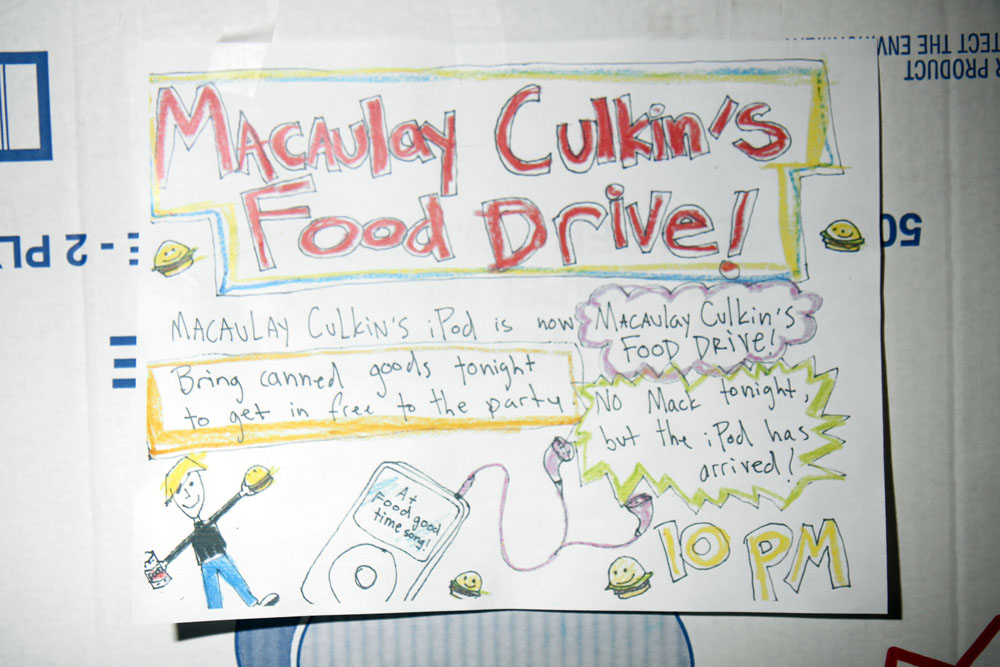 MACAULAY CULKIN'S
FOOD DRIVE!
MACAULAY CULKIN'S iPod is now
MACAULAY CULKIN'S
FOOD DRIVE!
Bring canned goods tonight
to get in free to the party
No Mack tonight,
but the iPod has
arrived!
At
Food good
time song!
10 PM
TECT THE ENV
R PRODUCT
50
- 2 PLY